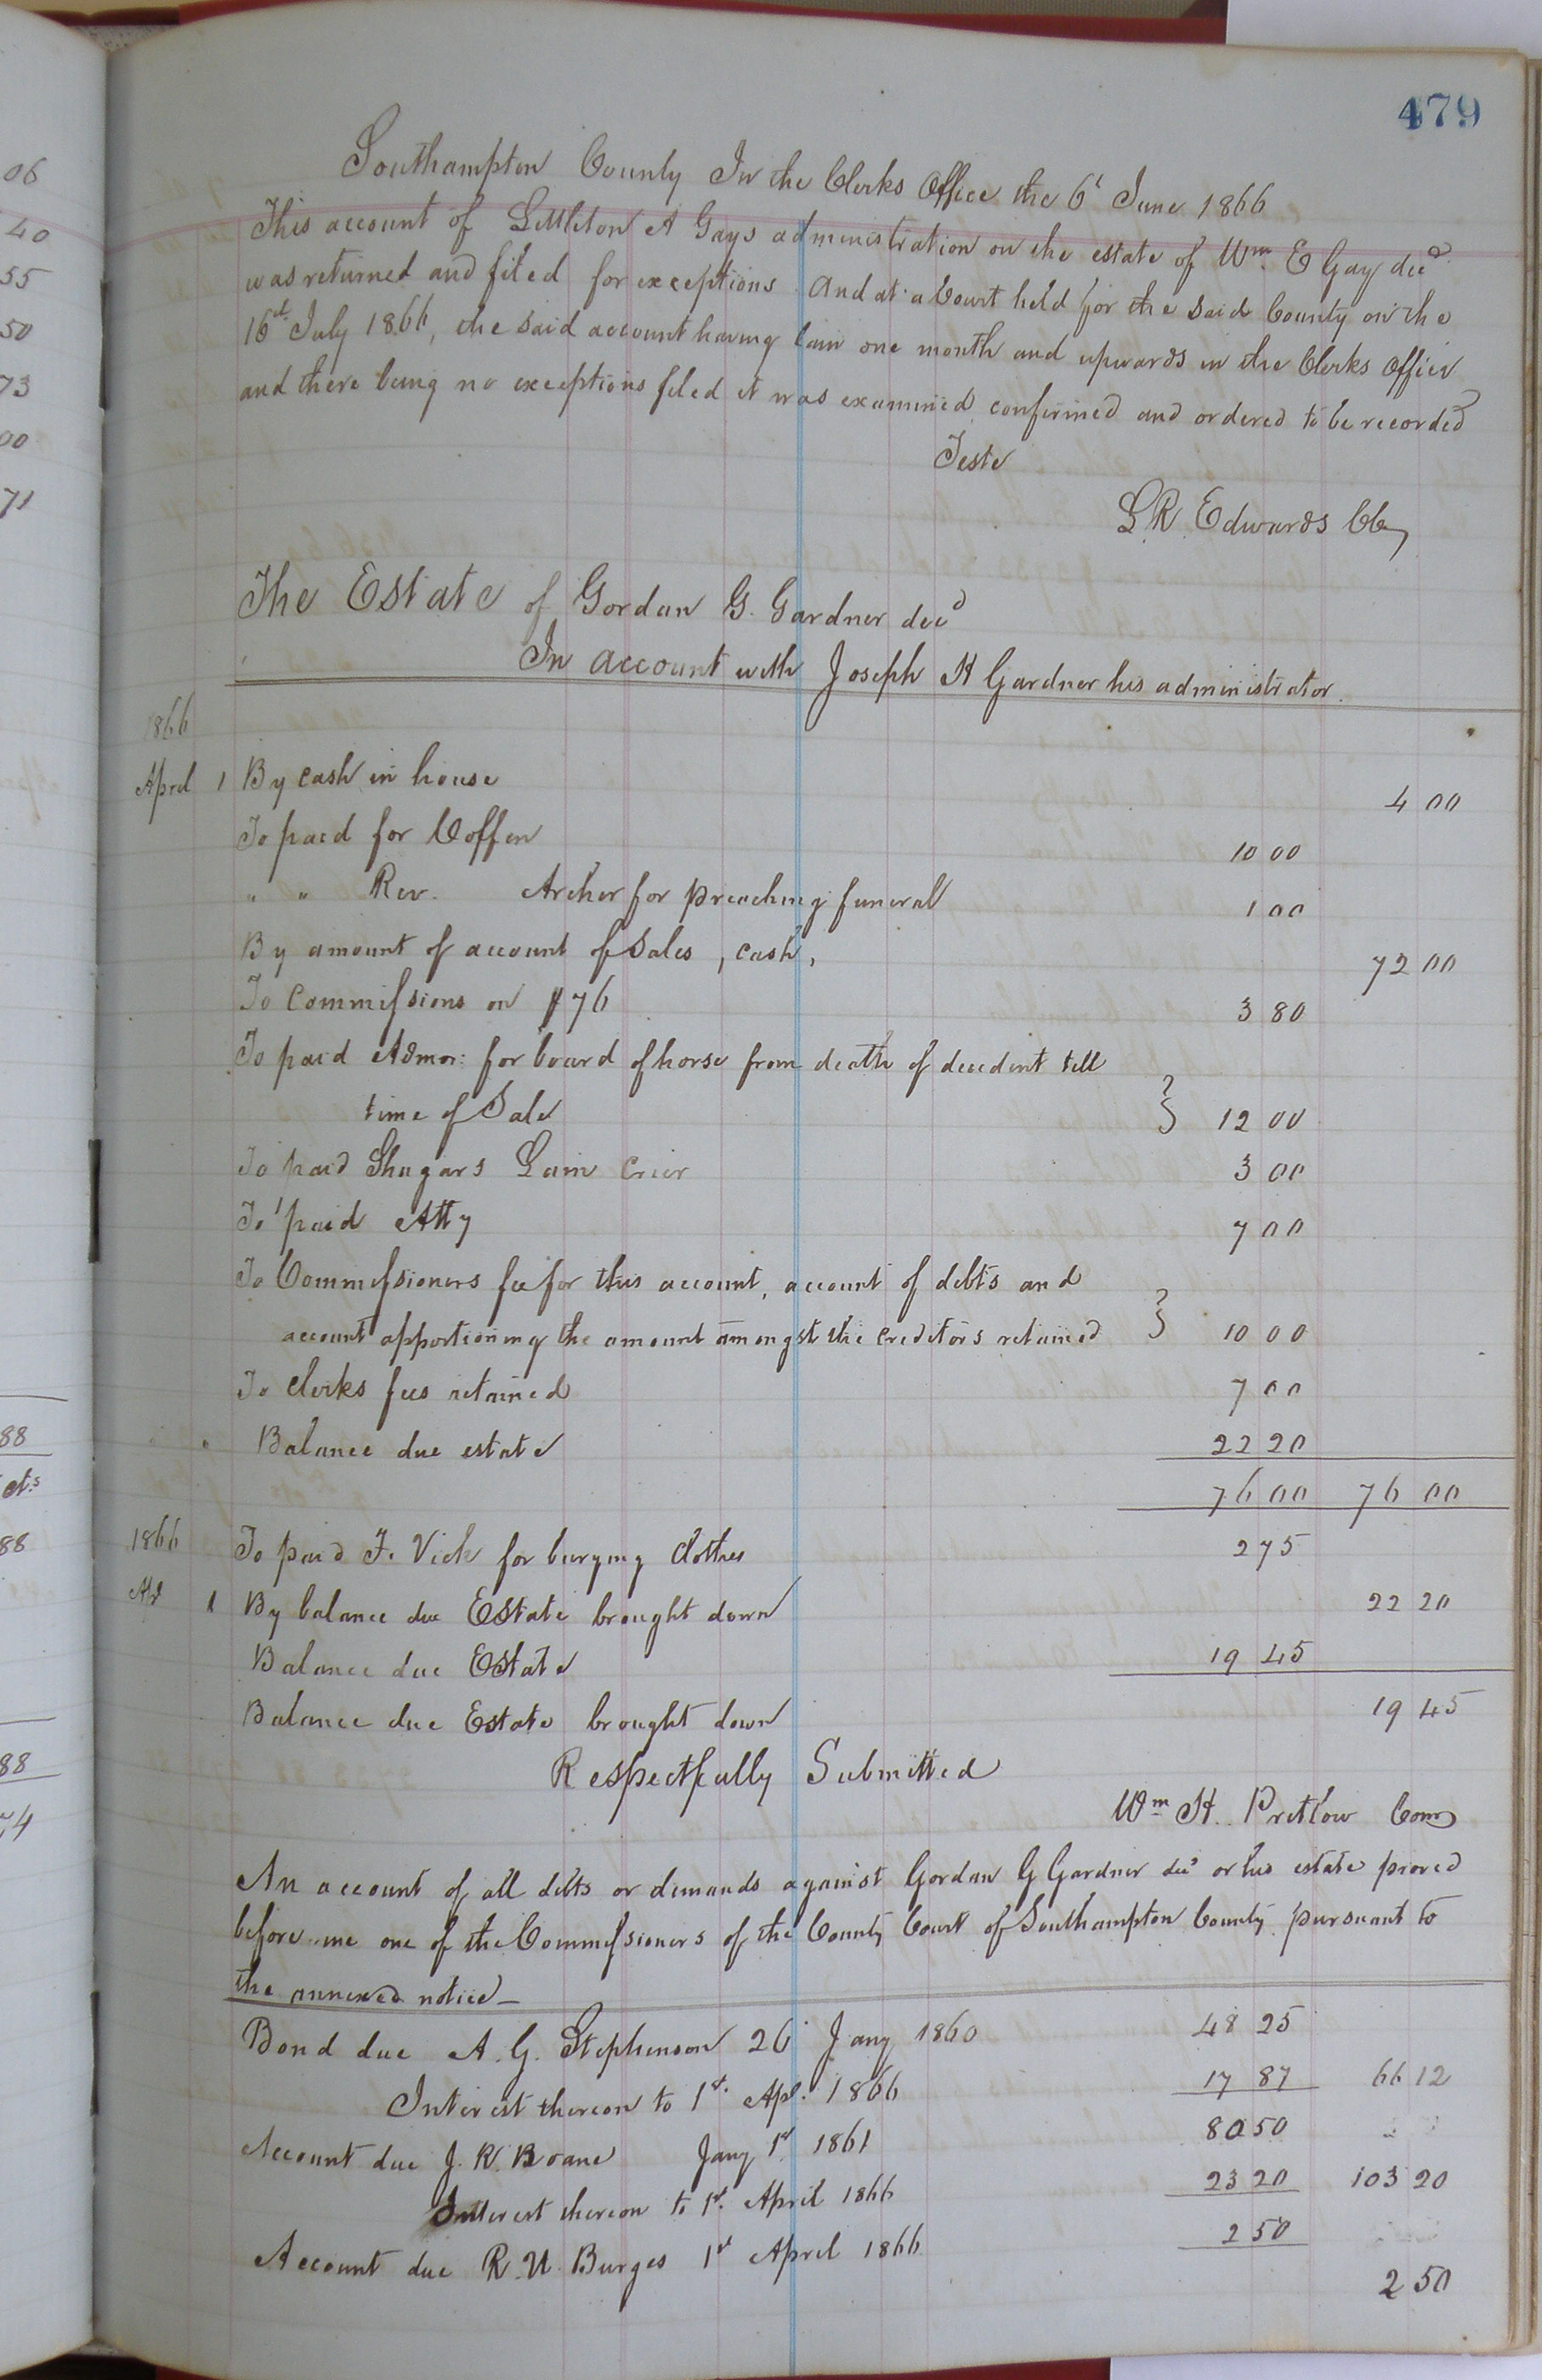 479
Southampton County In the Clerks Office the 6t June 1866
This account of Littleton A Gays administration on the estate of Wm. E Gay decd
was returned and filed for exceptions And at a Court held for the said County on the
16th July 1866, the said account having lain one month and upwards in the Clerks Office
and there being no exceptions filed it was examined confirmed and ordered to be recorded
Teste
L. R. Edwards Clk
The Estate of Gordan G. Gardner decd
In account with Joseph H Gardner his administrator.
1866
April 1 By cash in house 4 00
To paid for Coffin 10 00
" " Rev. Archer for preaching funeral 1 00
By amount of account of Sales, cash, 72 00
To Commissions on $76 3 80
To paid Admor: for board of horse from death of decedent till
time of Sale } 12 00
To paid Shugars Lain Crier 3 00
To paid Atty 7 00
To Commissioners fee for this account, account of debts and
account apportioning the amount amongst the creditors retained } 10 00
To Clerks fees retained 7 00
Balance due estate 22 20
76 00 76 00
1866 To paid F. Vick for burying Clothes 2 75
Apl 1 By balance due Estate brought down 22 20
Balance due Estate 19 45
Balance due Estate brought down 19 45
Respectfully Submitted
Wm H. Pretlow Com
An account of all debts or demands against Gordan G Gardner decd or his estate proved
before me one of the Commissioners of the County Court of Southampton County pursuant to
the annexed notice—
Bond due A. G. Stephenson 26 Jany 1860 48 25
Interest thereon to 1st. Apl. 1866 17 87 66 12
Account due J. R. Boane Jany 1st 1861 80 50
Interest thereon to 1st. April 1866 23 20 103 20
Account due R. U. Burges 1st April 1866 2 50
2 50
06
40
55
50
73
00
71
88
cts
88
88